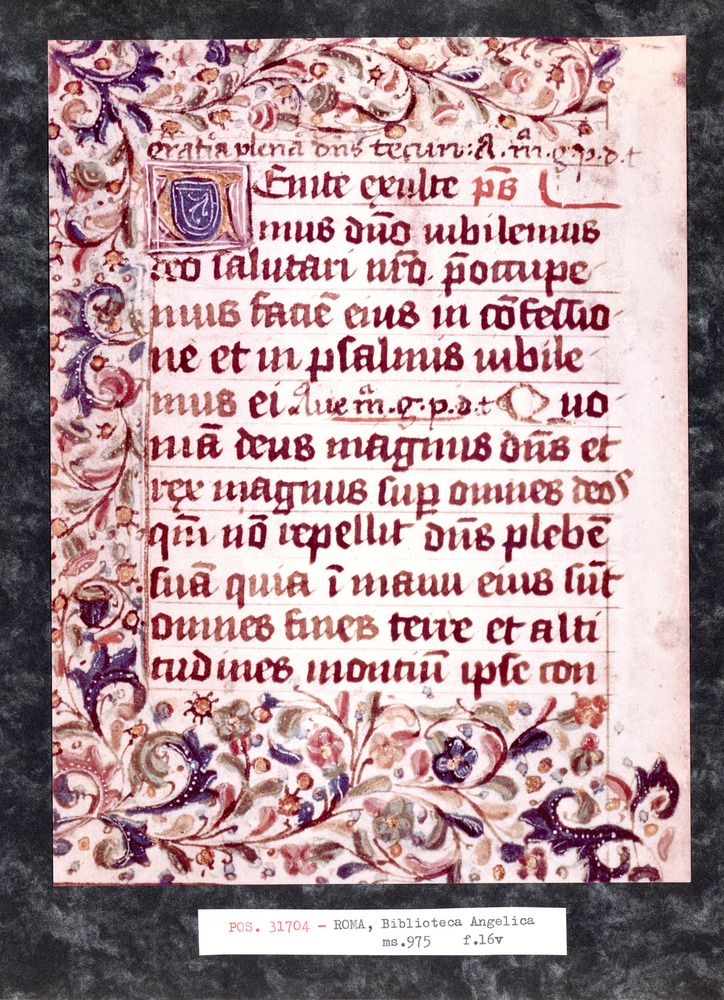 gratia plena dn̄s tecum: A. m̄ᵃ. g. p. d. t
VEnite exulte p̄s
mus dn̄o iubilemus
deo salutari nr̄o. p̄occupe
mus faciē eius in cōfessio
ne et in psalmis iubile
mus ei Aue m̄ᵃ. g. p. d. t Quo
niā deus magnus dn̄s et
rex magnus suꝑ omnes deos
qm̄ nō repellit dn̄s plebē
suā quia ī manu eius sūt
omnes fines terre et alti
tudines montiū ipse con
POS. 31704 - ROMA, Biblioteca Angelica
ms.975 f.16v